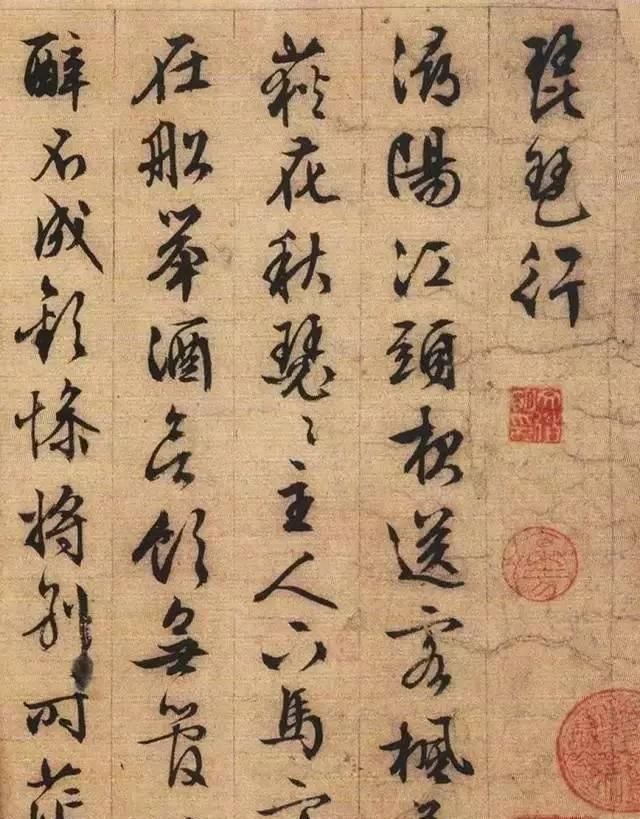 琵琶行
潯陽江頭夜送客楓
荻花秋瑟〻主人下馬
在船舉酒欲飲無管
醉不成歡慘將別時茫